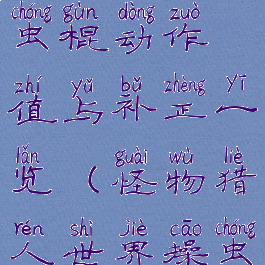 chóng gùn dòng zuò
虫棍动作
zhí yǔ bǔ zhèng yī
值与补正一
lǎn guài wù liè
览（怪物猎
rén shì jiè cāo chóng
人世界操虫